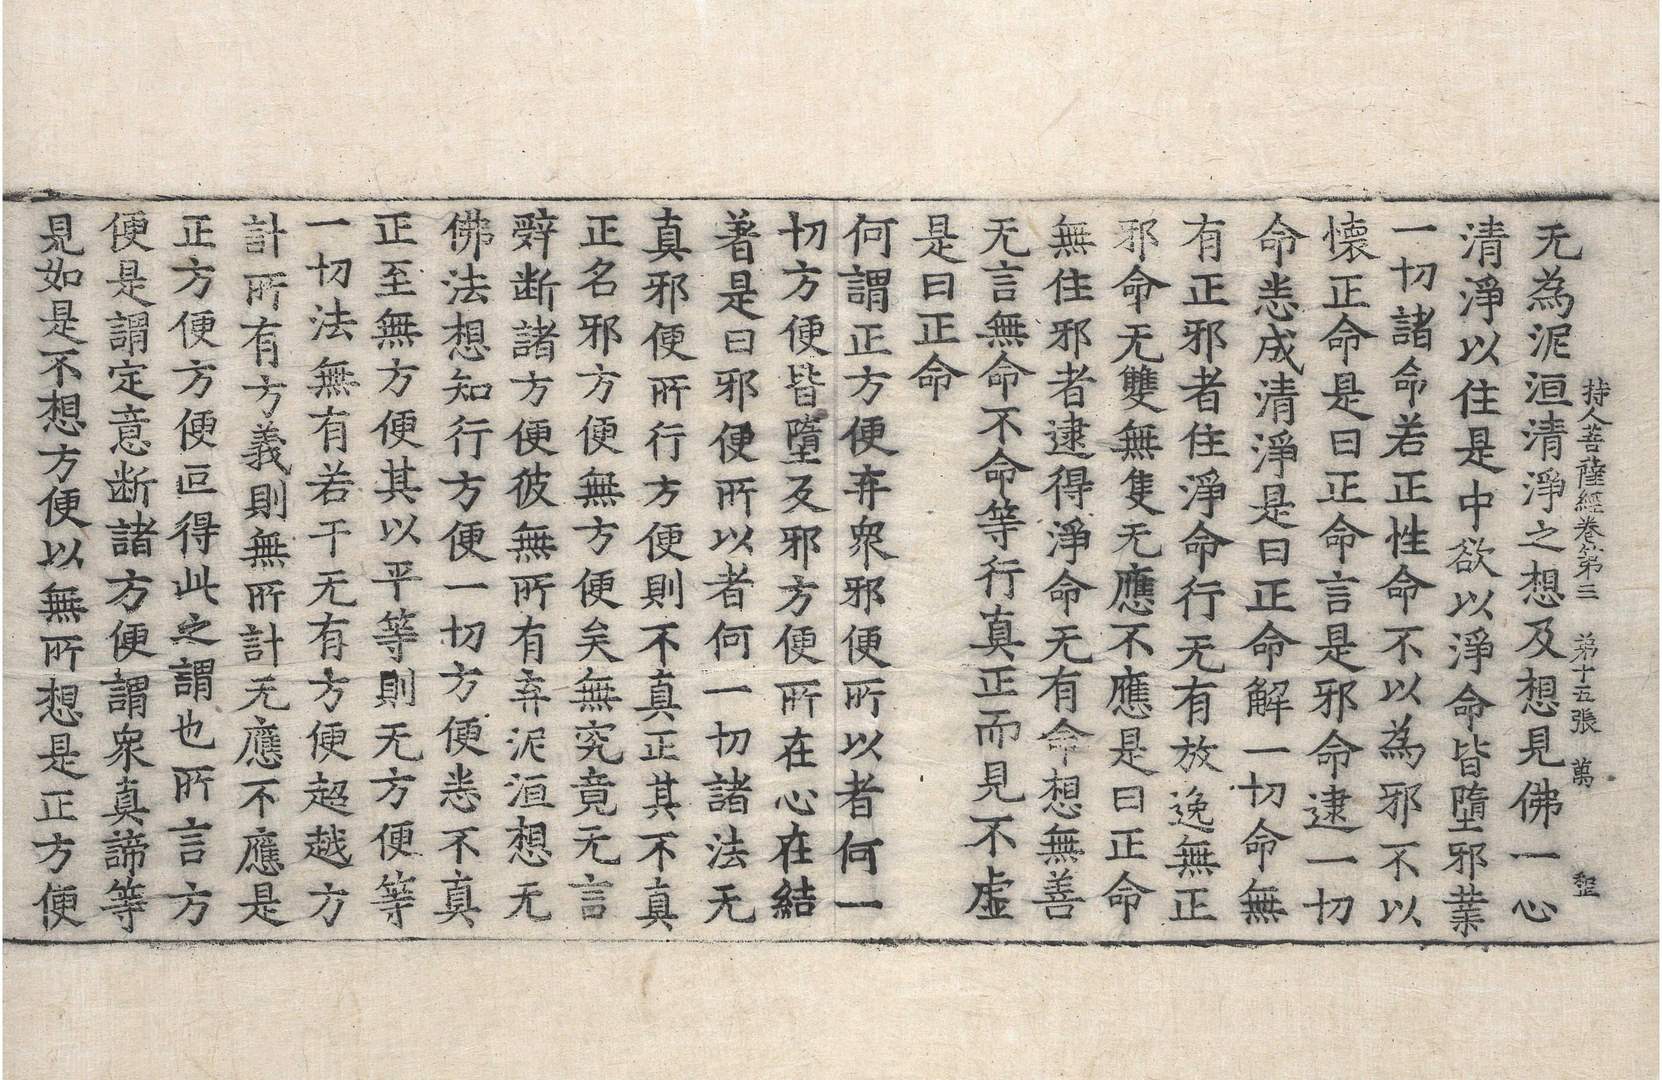 持人菩薩經卷第三 第十五張 萬
无為泥洹清淨之想及想見佛一心
清淨以住是中欲以淨命皆墮邪業
一切諸命若正性命不以為邪不以
懷正命是曰正命言是邪命逮一切
命悉成清淨是曰正命解一切命無
有正邪者住淨命行无有放逸無正
邪命无雙無隻无應不應是曰正命
無住邪者逮得淨命无有命想無善
无言無命不命等行真正而見不虛
是曰正命
何謂正方便弃衆邪便所以者何一
切方便皆墮及邪方便所在心在結
著是曰邪便所以者何一切諸法无
真邪便所行方便則不真正其不真
正名邪方便無方便矣無究竟无言
辤斷諸方便彼無所有弃泥洹想无
佛法想知行方便一切方便悉不真
正至無方便其以平等則无方便等
一切法無有若干无有方便超越方
計所有方義則無所計无應不應是
正方便方便叵得此之謂也所言方
便是謂定意斷諸方便謂衆真諦等
見如是不想方便以無所想是正方便